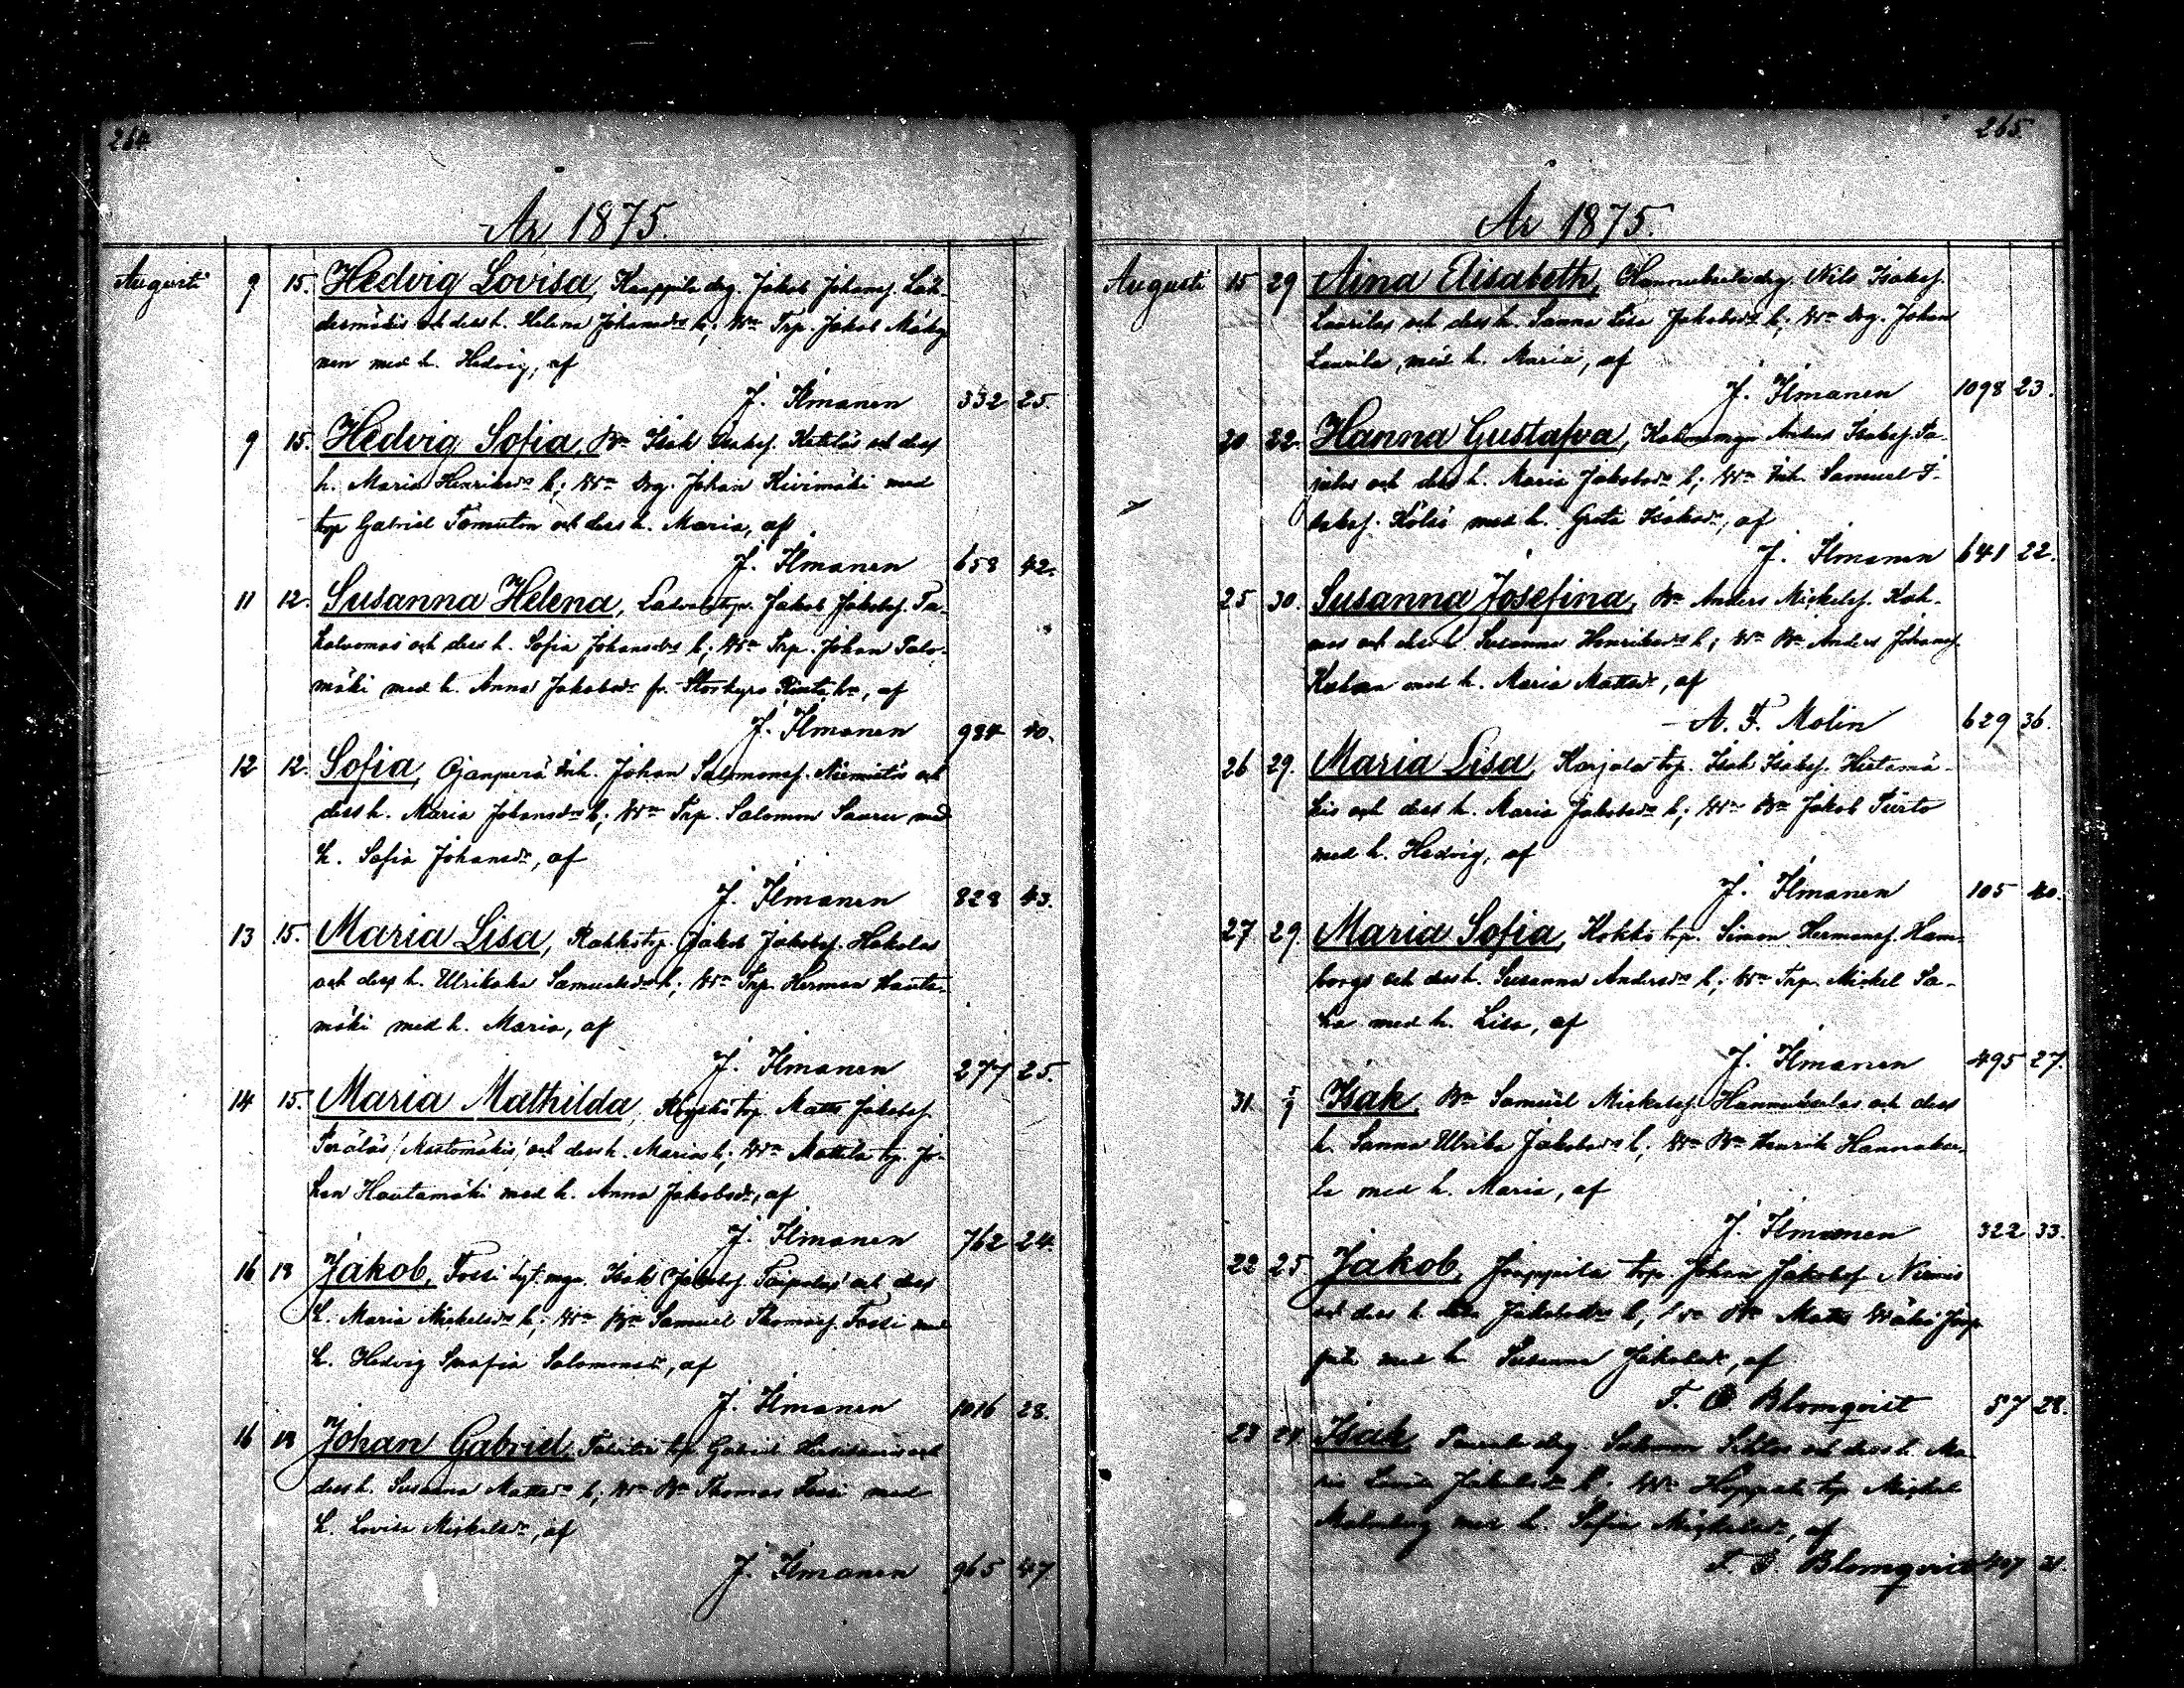 264
År 1875.
Augusti 9 15. Hedvig Lovisa, Kauppila drg. Jakob Johansf. Läh-
desmäkis och dess h. Helena Johansdrs b; Wn Trp. Jakob Mäky-
nen med h. Hedvig, af
J. Ilmanen 332 25.
9 15. Hedvig Sofia, Bn Isak Isaksf. Ketolas och dess
h. Maria Henriksdrs b; Wn Drg. Johan Kivimäki med
trp Gabriel och dess h. Maria, af
J. Ilmanen 658 42.
11 12. Susanna Helena, trp. Jakob Jakobsf. Ta-
kaluomas och dess h. Sofia Johansdrs b; Wn Trp. Johan Talo-
mäki med h. Anna Jakobsdr fr. Storkyro, af
J. Ilmanen 984 40.
12 12. Sofia, Ojanperä Inh. Johan Salomonsf. Niemistös och
dess h. Maria Johansdrs b; Wn Trp. Salomon Sauru med
h. Sofia Johansdr, af
J. Ilmanen 828 43.
13 15. Maria Lisa, trp. Jakob Jakobsf. Hakolas
och dess h. Ulrikaka Samuelsdrs b; Wn Trp. Herman Hauta-
mäki med h. Maria, af
J. Ilmanen 277 25.
14 15. Maria Mathilda, trp Matts Jakobsf.
Perälas/Mastomäkis/ och dess h. Marias b; Wn Mattila trp. Jo-
han Hautamäki med h. Anna Jakobsdr, af
J. Ilmanen 762 24.
16 18 Jakob, Fossi Isak Jakobsf. och dess
h. Maria Mickelsdrs b; Wn Bn Samuel Thomasf. Fossi med
h. Hedvig Serafia Salomonsdr, af
J. Ilmanen 1016 28.
16 18 Johan Gabriel, trp Gabriel och
dess h. Susanna Mattsdrs b; Wn Bn Thomas Fossi med
h. Lovisa Mickelsdr, af
J. Ilmanen 965 47
265
År 1875.
Augusti 15 29 Aina Elisabeth, Hannuksela drg. Nils Isaksf.
Laurilas och dess h. Sanna Lisa Jakobsdrs b; Wn Drg. Johan
Laurila, med h. Maria, af
J. Ilmanen 1098 23.
20 22. Hanna Gustafva, Anders Isaksf. Pa-
julas och dess h. Maria Jakobsdrs b; Wn Inh. Samuel I-
saksf. Kölsi med h. Greta Isaksdr, af
J. Ilmanen 641 22.
25 30. Susanna Josefina, Bn Anders Mickelsf. Koh-
nas och dess h. Susanna Henriksdrs b; Wn Bn Anders Johansf.
med h. Maria Mattsdr, af
A. F. Molin 629 36.
26 29. Maria Lisa, Karjala trp. Isak Isaksf. Hietamä-
kis och dess h. Maria Jakobsdrs b; Wn Bn Jakob Siirto
med h. Hedvig, af
J. Ilmanen 105 40.
27 29. Maria Sofia, Kokko trp. Simon Hermansf. Ham-
borgs och dess h. Susanna Andersdrs b; Wn Trp. Mickel Sa-
ha med h. Lisa, af
J. Ilmanen 495 27.
31. 5/9 Isak, Bn Samuel Mickelsf. Hannukselas och dess
h. Sanna Ulrika Jakobsdrs b; Wn Bn Henrik Hannukse-
la med h. Maria, af
J. Ilmanen 322 33.
22 25 Jakob, Jouppila trp Johan Jakobsf Niemis
och dess h. Jakobsdrs b; Wn Bn Matts Wäli Joup-
pila med h Susanna Jakobsdr, af
F. O. Blomqvist 57 28.
23 Isak drg. Salomon och dess h. Ma-
ria Jakobsdrs b; Wn trp Mickel
Malmberg med h. Sofia Mickelsdr, af
F. O. Blomqvist